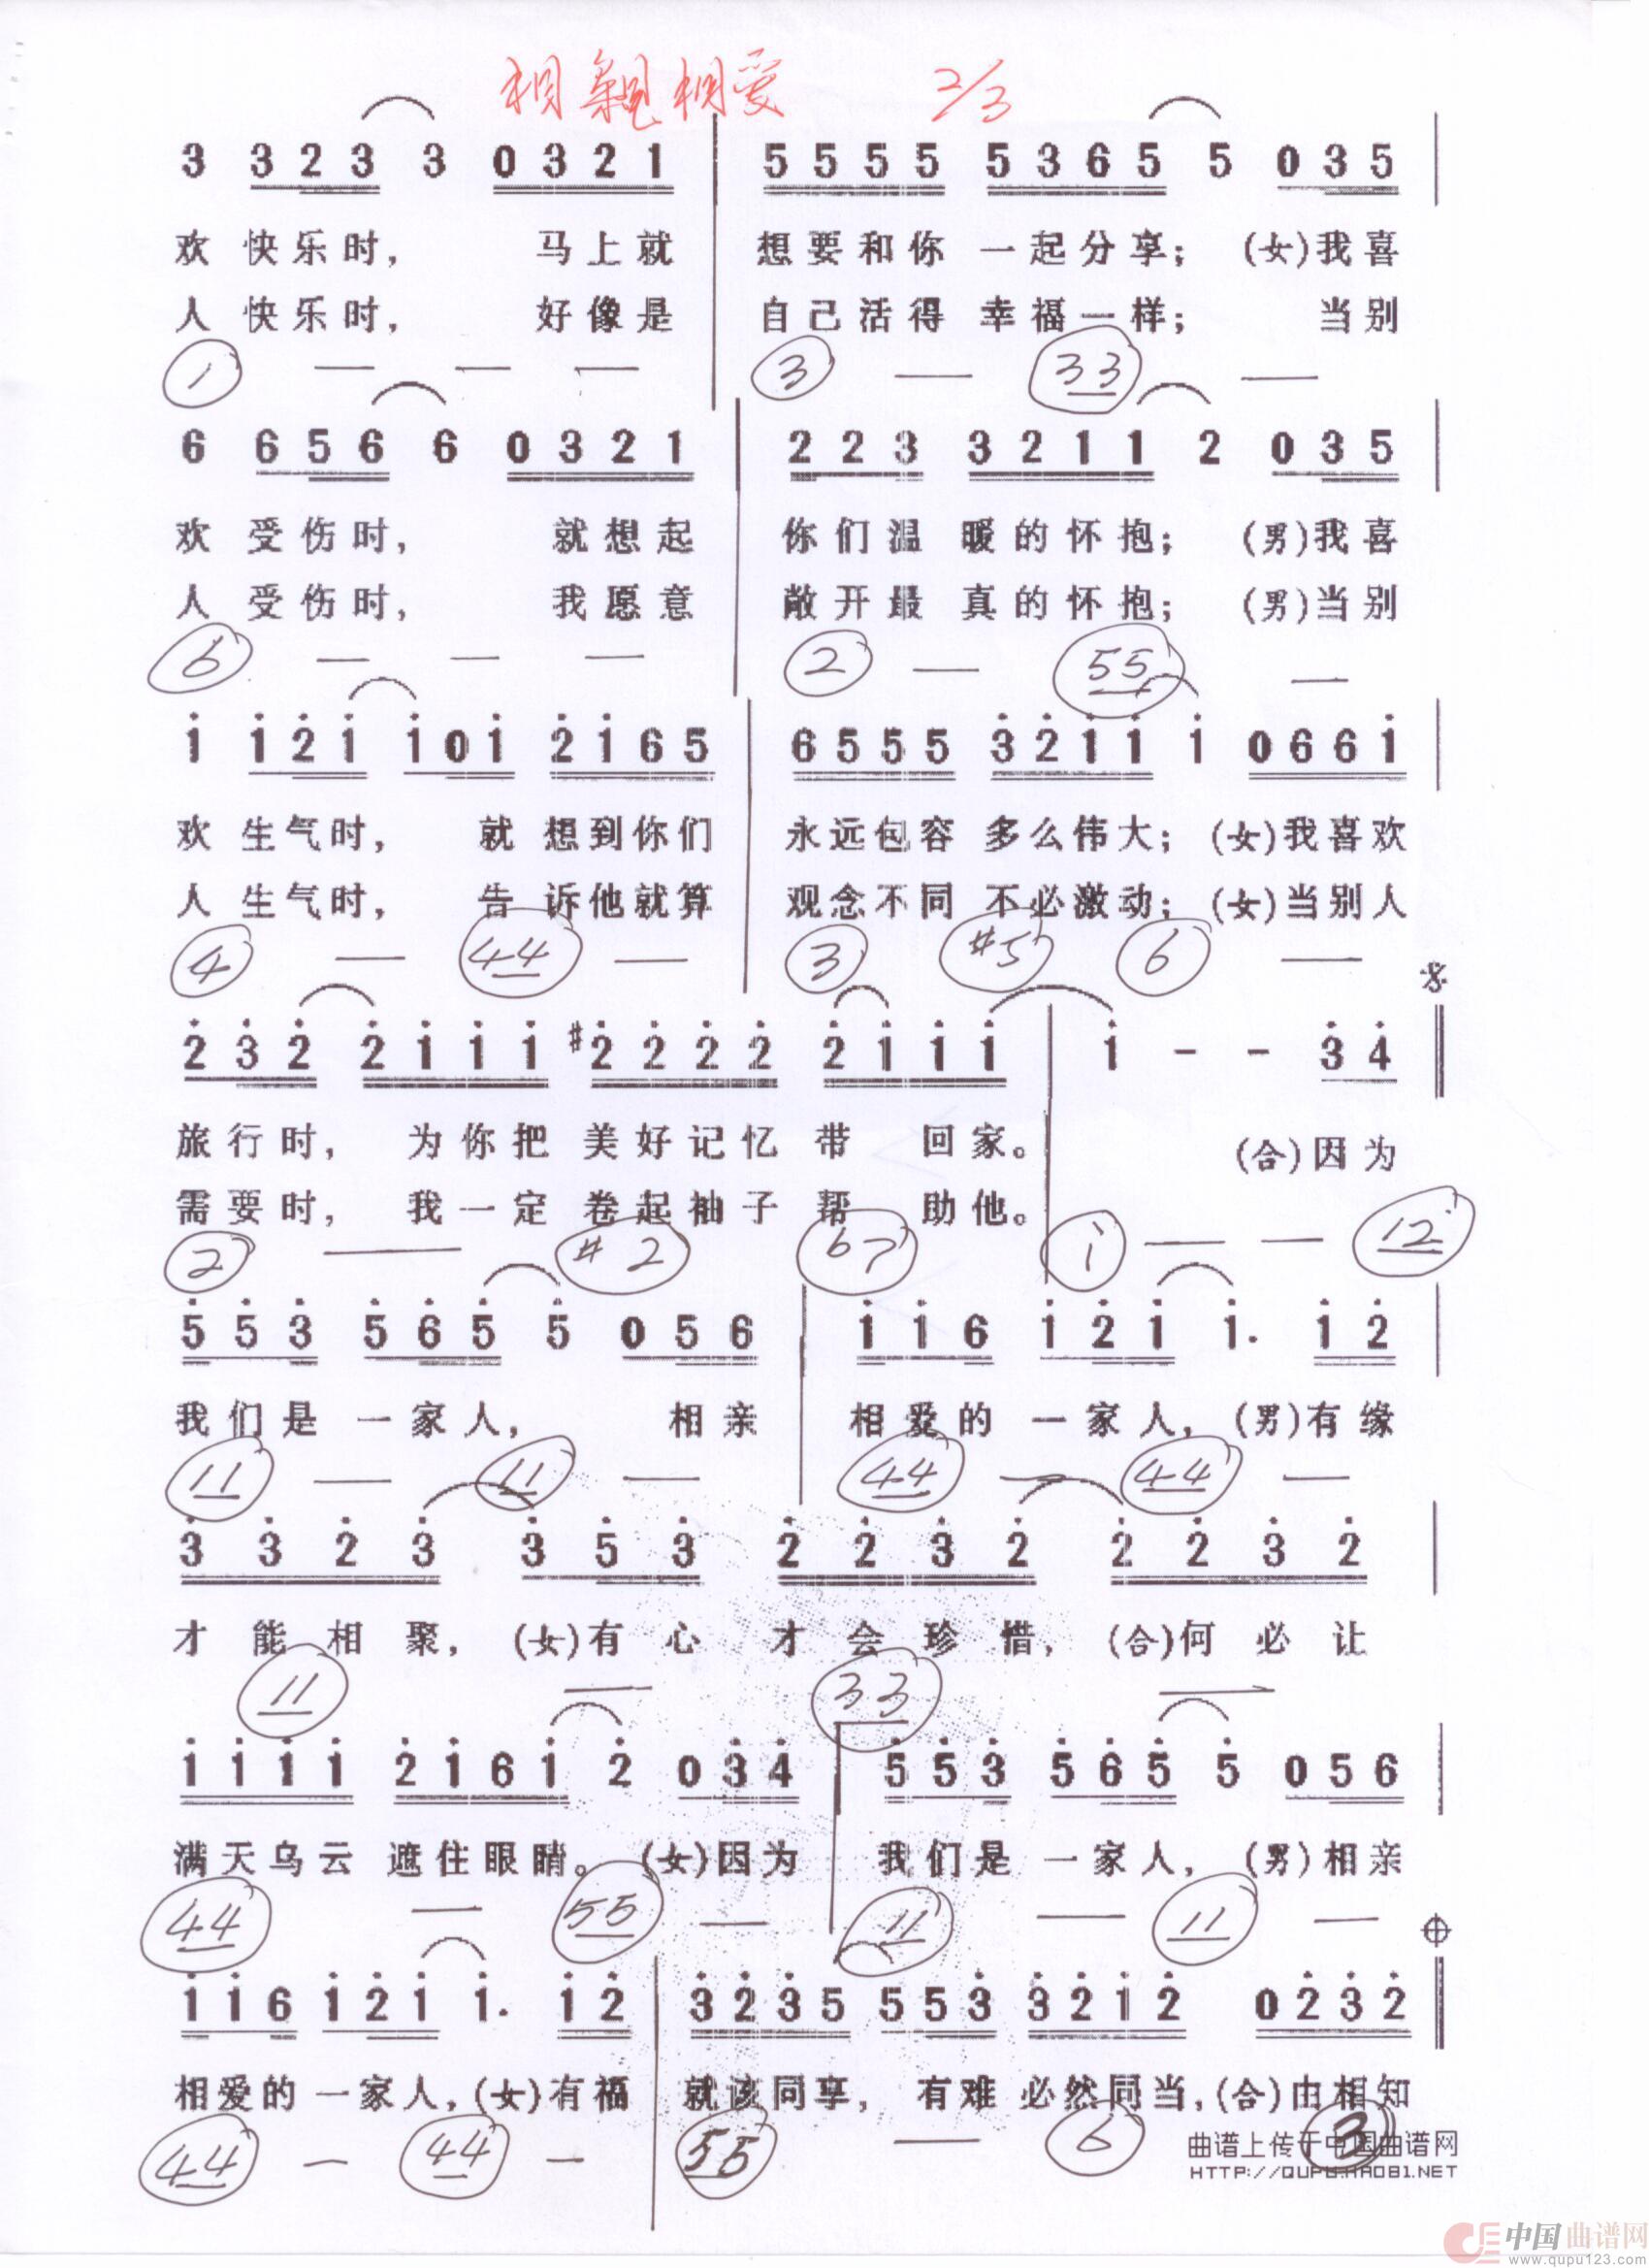 相親相爱 2/3
3 3 2 3 3 0 3 2 1 5 5 5 5 5 3 6 5 5 0 3 5
欢 快乐时, 马上就 想要和你 一起分享; (女)我喜
人 快乐时, 好像是 自己活得 幸福一样; 当别
1 — — — 3 — 33 —
6 6 5 6 6 0 3 2 1 2 2 3 3 2 1 1 2 0 3 5
欢 受伤时, 就想起 你们温 暖的怀抱; (男)我喜
人 受伤时, 我愿意 敞开最 真的怀抱; (男)当别
6 — — — 2 — 55 —
1 1 2 1 1 0 1 2 1 6 5 6 5 5 5 3 2 1 1 1 0 6 6 1
欢 生气时, 就 想到你们 永远包容 多么伟大; (女)我喜欢
人 生气时, 告 诉他就算 观念不同 不必激动; (女)当别人
4 — 44 — 3 #5 6 —
2 3 2 2 1 1 1 #2 2 2 2 2 1 1 1 1 - - 3 4
旅行时, 为你把 美好记忆 带 回家。 (合)因为
需要时, 我一定 卷起袖子 帮 助他。
2 — #2 67 i — — 12
5 5 3 5 6 5 5 0 5 6 1 1 6 1 2 1 1. 1 2
我们是 一家人, 相亲 相爱的 一家人, (男)有缘
11 — 11 — 44 — 44 —
3 3 2 3 3 5 3 2 2 3 2 2 2 3 2
才能相聚, (女)有心 才会珍惜, (合)何必让
11 — 33 —
1 1 1 1 2 1 6 1 2 0 3 4 5 5 3 5 6 5 5 0 5 6
满天乌云 遮住眼睛。 (女)因为 我们是 一家人, (男)相亲
44 — 55 — 11 — 11 —
1 1 6 1 2 1 1. 1 2 3 2 3 5 5 5 3 3 2 1 2 0 2 3 2
相爱的 一家人, (女)有福 就该同享, 有难 必然同当, (合)由相知
44 — 44 — 55 — 6 3
曲谱上传于中国曲谱网
HTTP://QUPU.HAO81.NET
中国曲谱网
www.qupu123.com